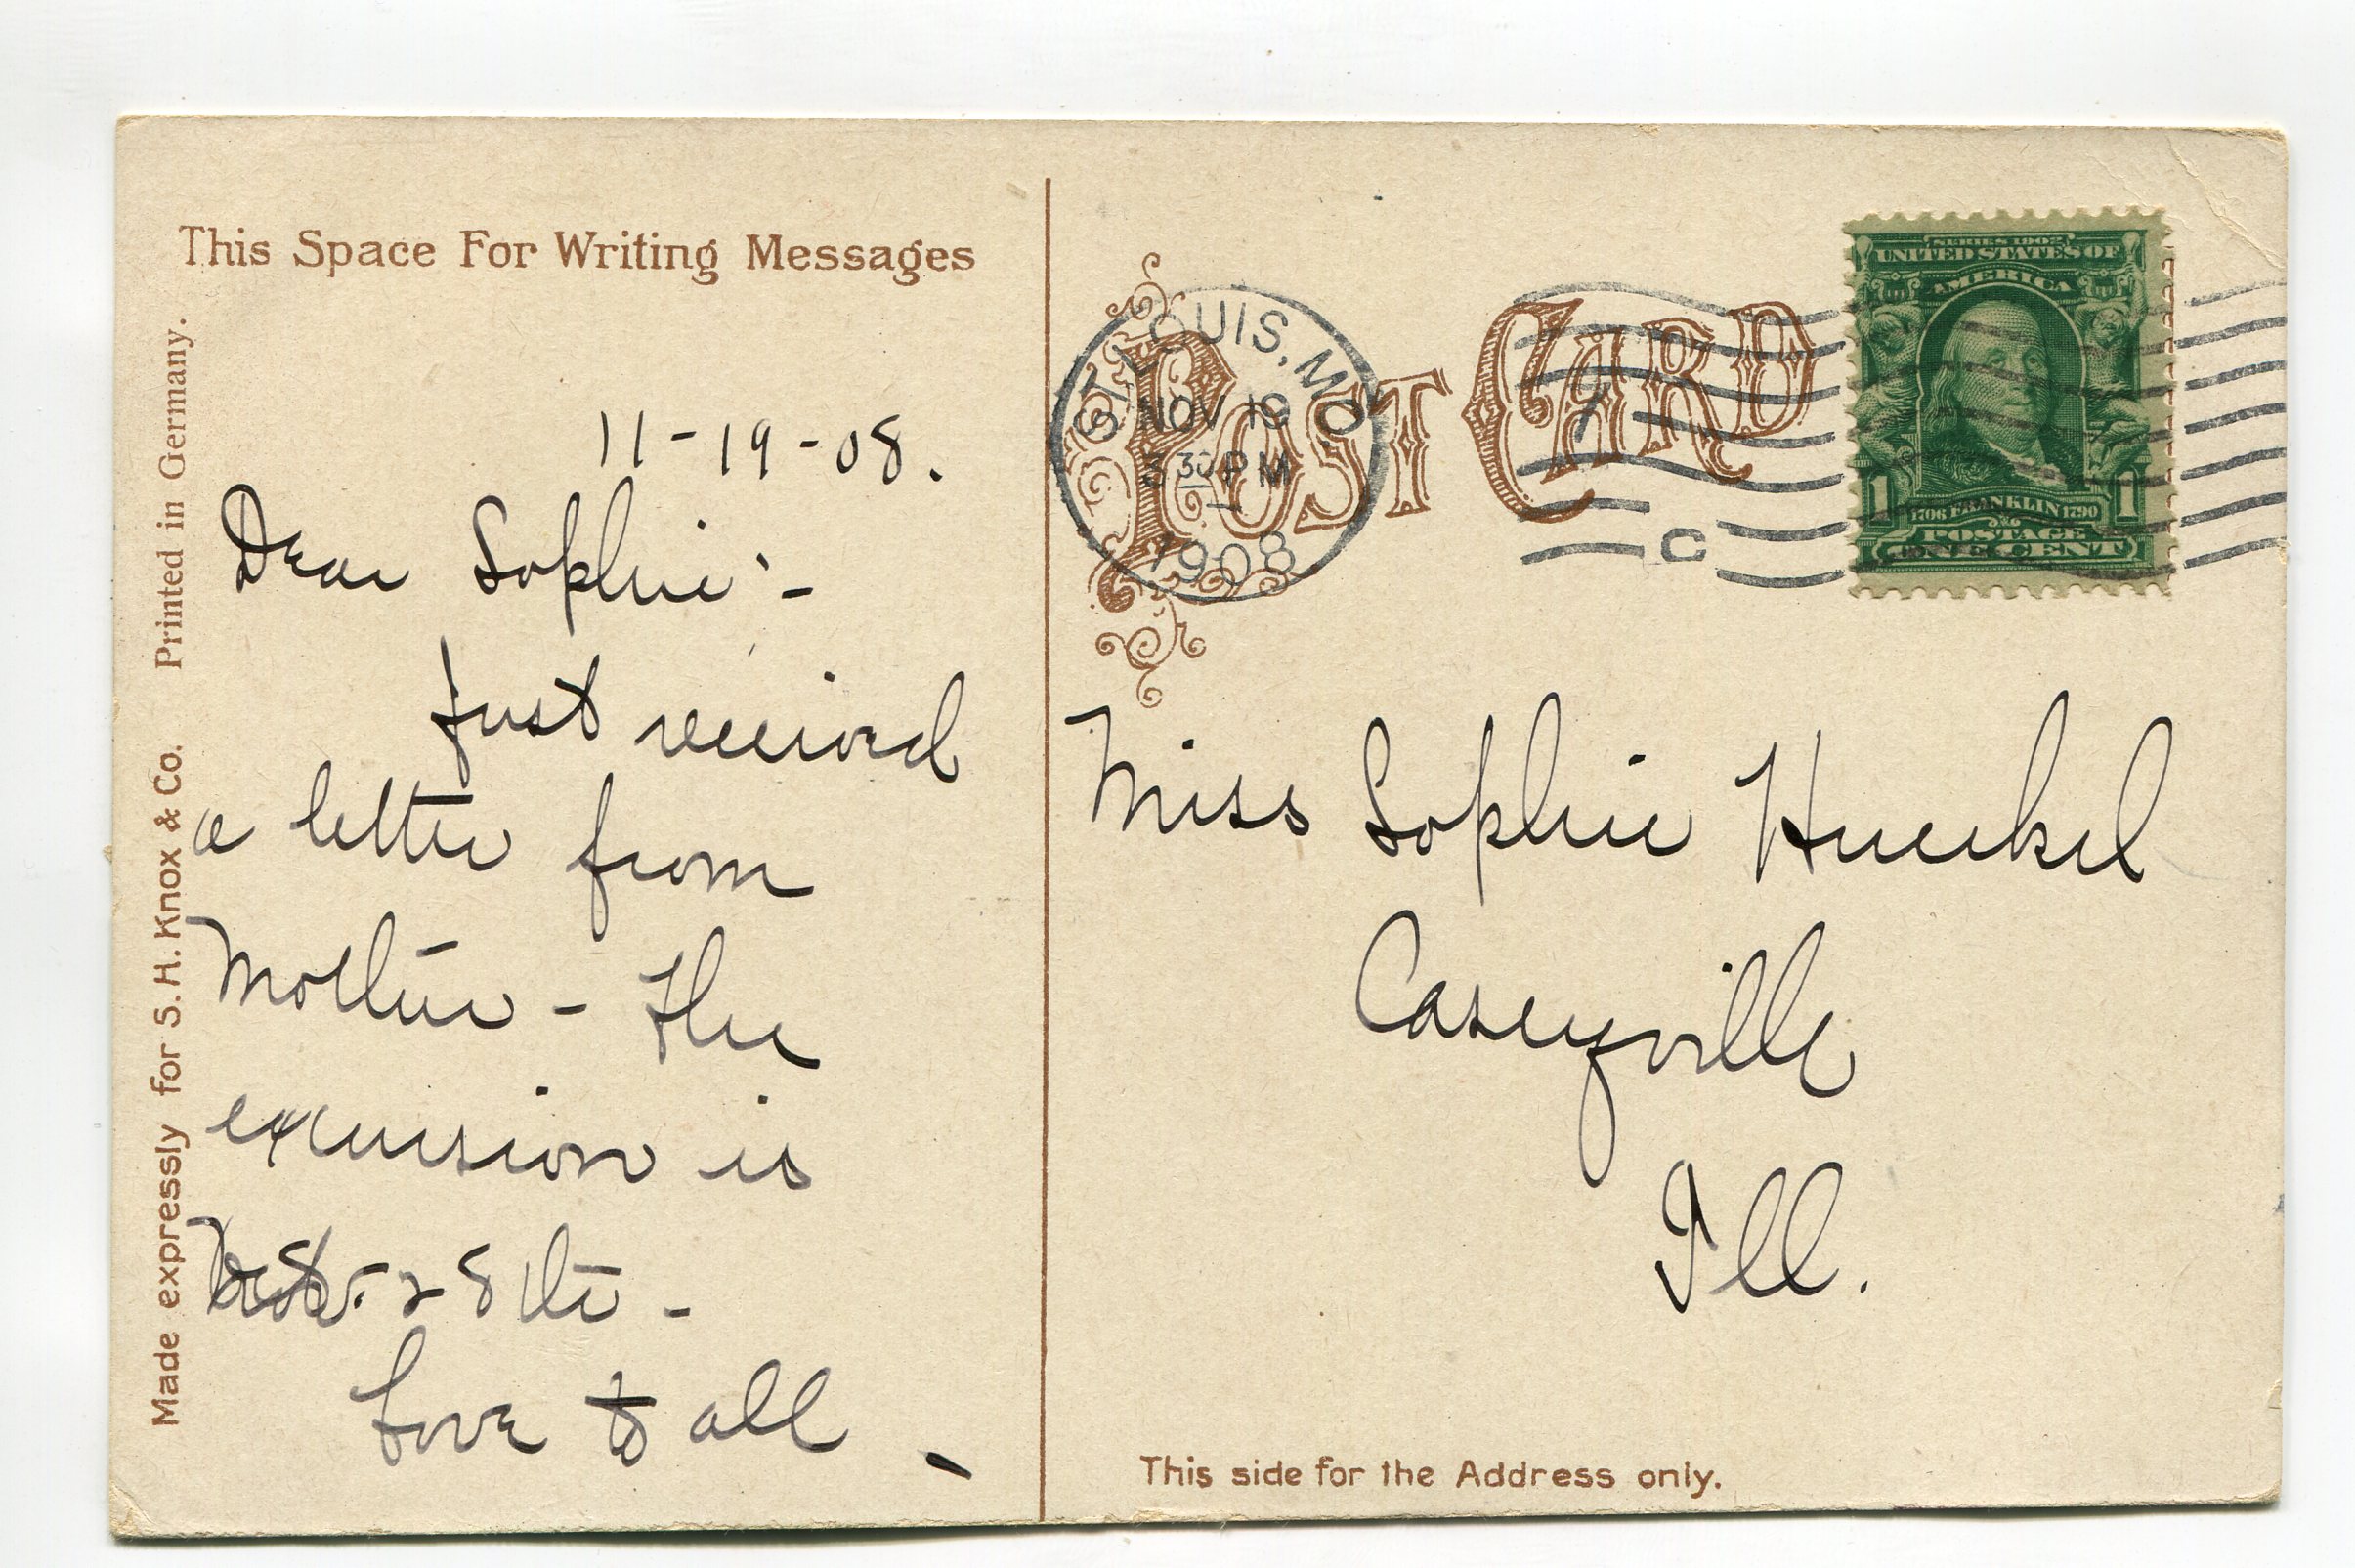 This Space For Writing Messages
11-19-08.
Dear Sophie:-
Just received
a letter from
Mother - The
excursion is
28th -
Love to all -
Made expressly for S. H. Knox & Co. Printed in Germany.
POST CARD
ST. LOUIS, MO
NOV 19
3 30 PM
1908
C
SERIES 1902
UNITED STATES OF
AMERICA
1 1706 FRANKLIN 1790 1
POSTAGE
ONE CENT
Miss Sophie Hueckel
Caseyville
Ill.
This side for the Address only.